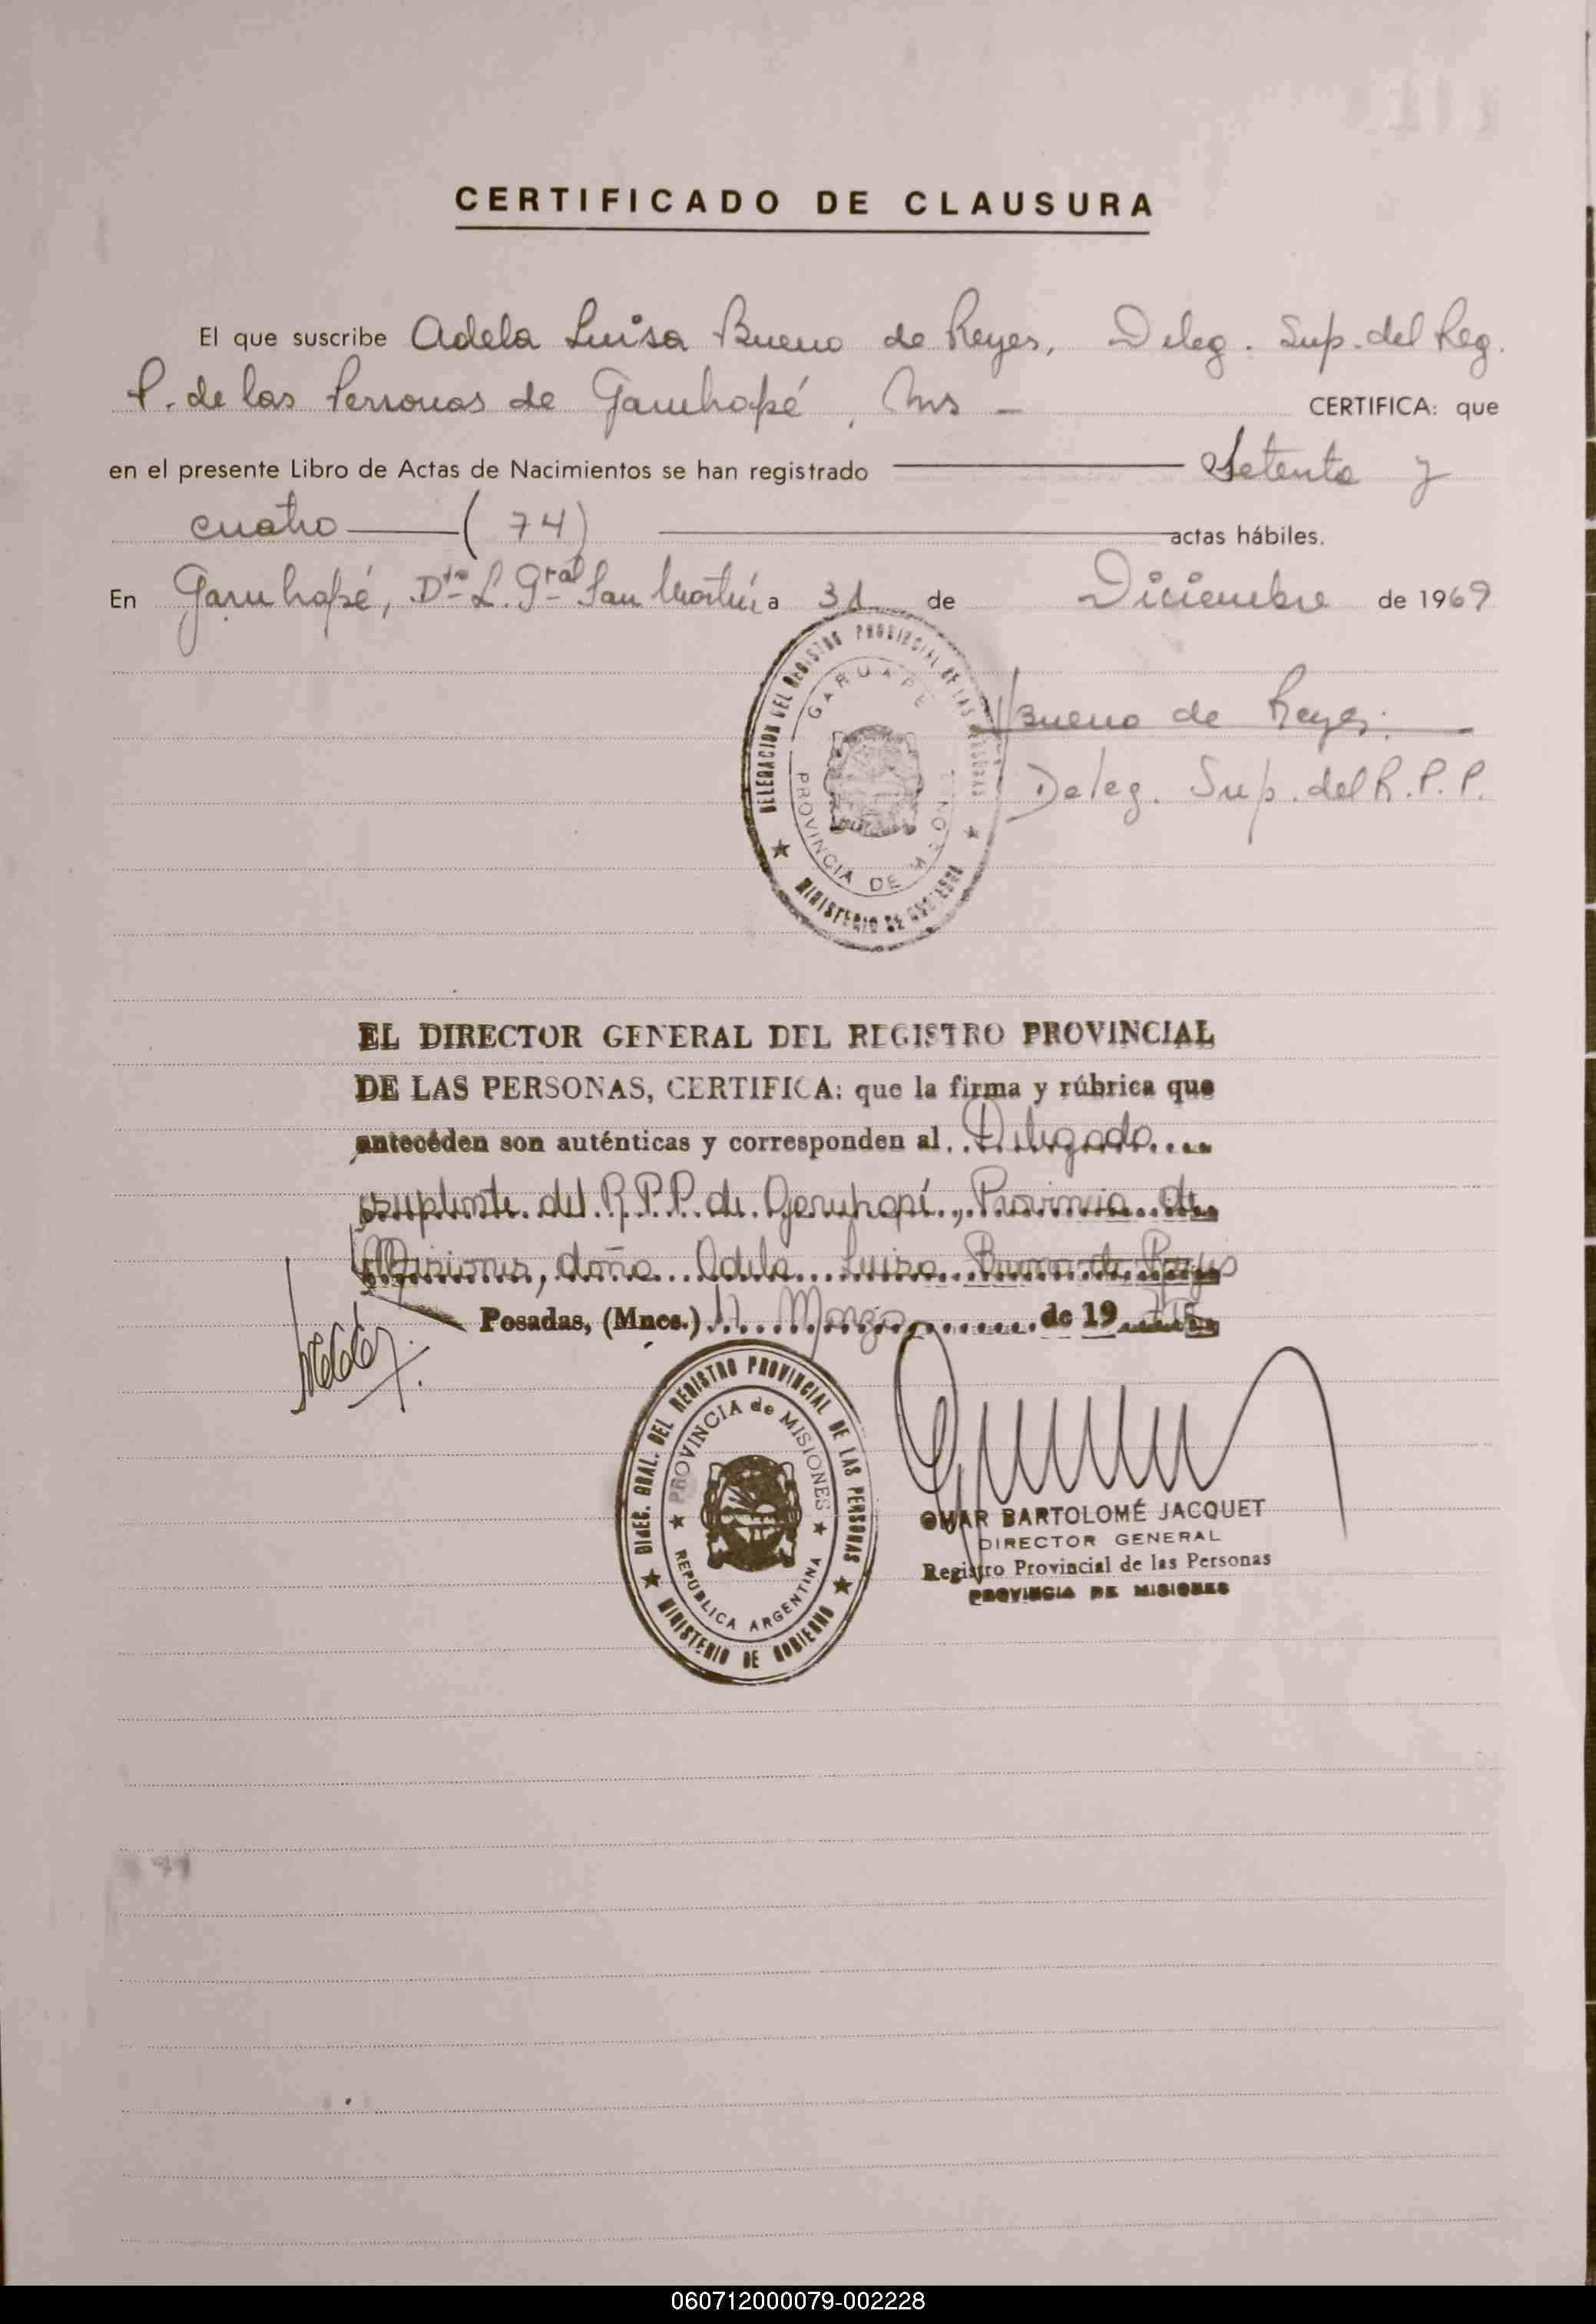 CERTIFICADO DE CLAUSURA
El que suscribe Adela Luisa Bueno de Reyes, Deleg. Sup. del Reg.
P. de las Personas de Garuhapé, Mns - CERTIFICA: que
en el presente Libro de Actas de Nacimientos se han registrado Setenta y
cuatro (74) actas hábiles.
En Garuhapé, Dto L. Gral San Martín a 31 de Diciembre de 1969
DELEGACION DEL REGISTRO PROVINCIAL DE LAS PERSONAS
GARUAPE
PROVINCIA DE MISIONES
MINISTERIO DE GOBIERNO
Bueno de Reyes.
Deleg. Sup. del R.P.P.
EL DIRECTOR GENERAL DEL REGISTRO PROVINCIAL
DE LAS PERSONAS, CERTIFICA: que la firma y rúbrica que
anteceden son auténticas y corresponden al Delegado
suplente del R.P.P. de Garuhapé, Provincia de
Misiones, doña Adela Luisa Bueno de Reyes
Posadas, (Mnes.) Marzo de 19
DIREC. GRAL. DEL REGISTRO PROVINCIAL DE LAS PERSONAS
PROVINCIA de MISIONES
REPUBLICA ARGENTINA
MINISTERIO DE GOBIERNO
OMAR BARTOLOMÉ JACQUET
DIRECTOR GENERAL
Registro Provincial de las Personas
PROVINCIA DE MISIONES
060712000079-002228